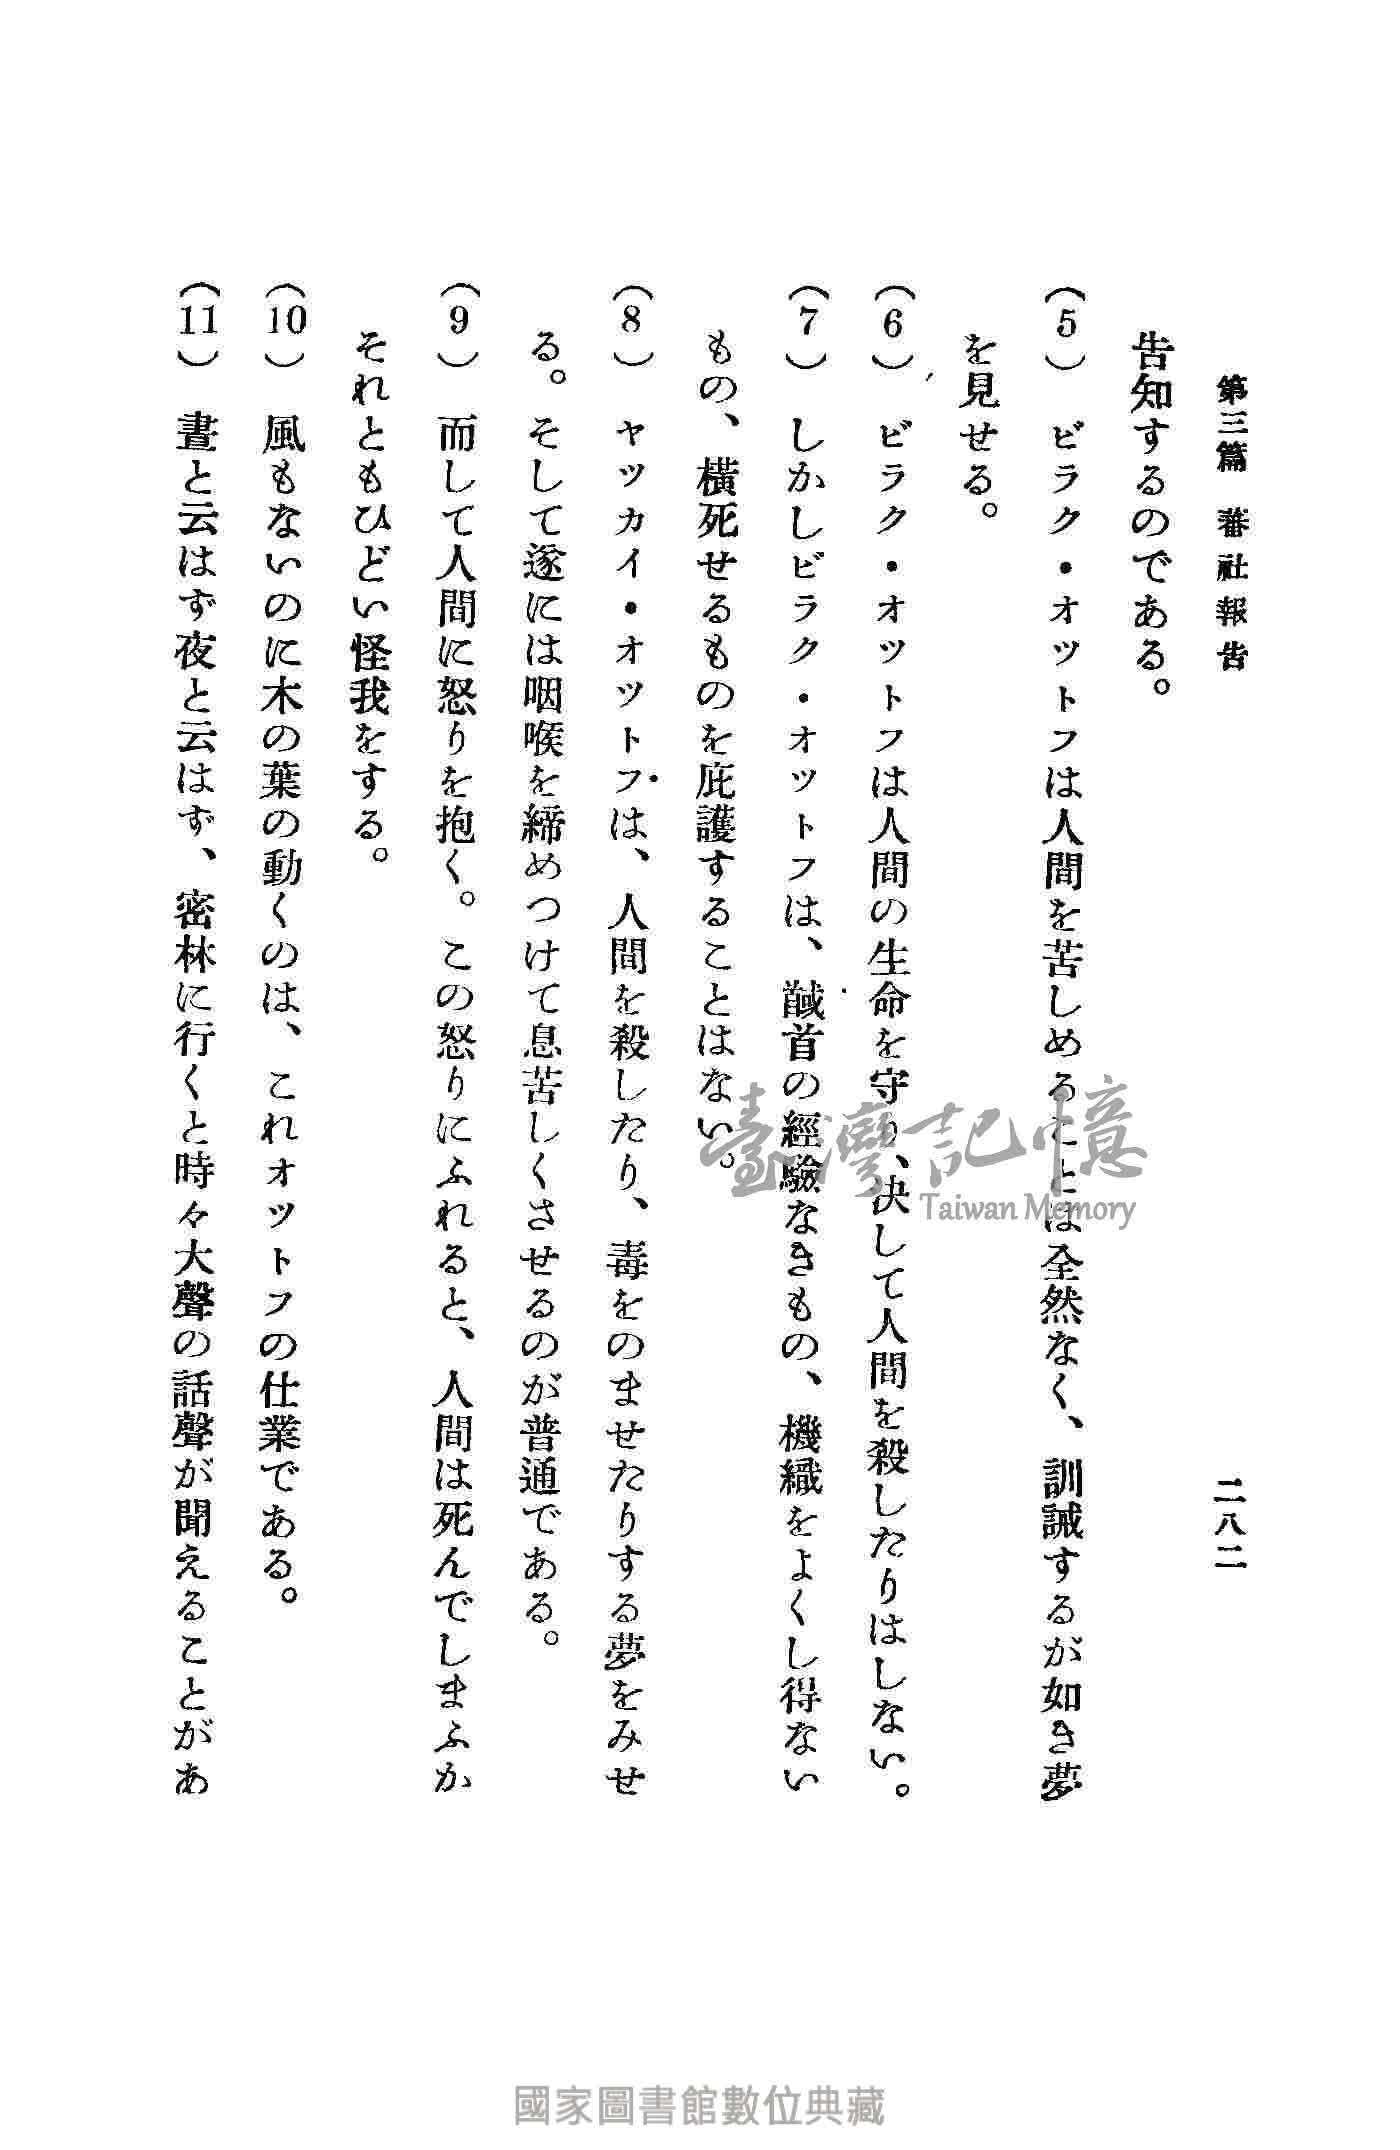 第三篇 蕃社報告
二八二
告知するのである。
(5) ビラク・オットフは人間を苦しめることは全然なく、訓誡するが如き夢
を見せる。
(6) ビラク・オットフは人間の生命を守り、決して人間を殺したりはしない。
(7) しかしビラク・オットフは、馘首の經驗なきもの、機織をよくし得ない
もの、橫死せるものを庇護することはない。
(8) ヤッカイ・オットフは、人間を殺したり、毒をのませたりする夢をみせ
る。そして遂には咽喉を締めつけて息苦しくさせるのが普通である。
(9) 而して人間に怒りを抱く。この怒りにふれると、人間は死んでしまふか
それともひどい怪我をする。
(10) 風もないのに木の葉の動くのは、これオットフの仕業である。
(11) 晝と云はず夜と云はず、密林に行くと時々大聲の話聲が聞えることがあ
臺灣記憶
Taiwan Memory
國家圖書館數位典藏